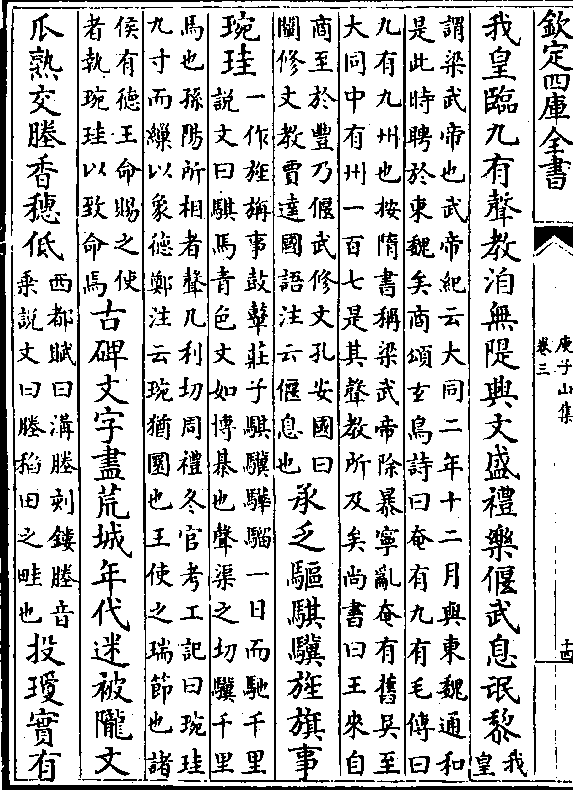 欽定四庫全書
庾子山集
卷三
十四
我皇臨九有聲教洎無隄興文盛禮樂偃武息氓黎我皇
謂梁武帝也武帝紀云大同二年十二月與東魏通和
是此時聘於東魏矣商頌玄鳥詩曰奄有九有毛傳曰
九有九州也按隋書稱梁武帝除暴寧亂奄有舊吳至
大同中有州一百七是其聲教所及矣尚書曰王來自
商至於豐乃偃武修文孔安國曰
闡修文教賈逵國語注云偃息也
承乏驅騏驥旌旗事
琬珪
一作旌旃事鼓鼙莊子騏驥驊騮一日而馳千里
說文曰騏馬青色文如博棊也聲渠之切驥千里
馬也孫陽所相者聲几利切周禮冬官考工記曰琬珪
九寸而繅以象德鄭注云琬猶圜也王使之瑞節也諸
侯有德王命賜之使
者執琬珪以致命焉
古碑文字盡荒城年代迷被隴文
瓜熟交塍香穗低
西都賦曰溝塍刻鏤塍音
乗說文曰塍稻田之畦也
投瓊實有